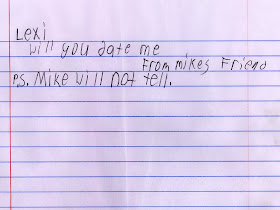 Lexi
will you date me
From mikes Friend
Ps. Mike will not tell.